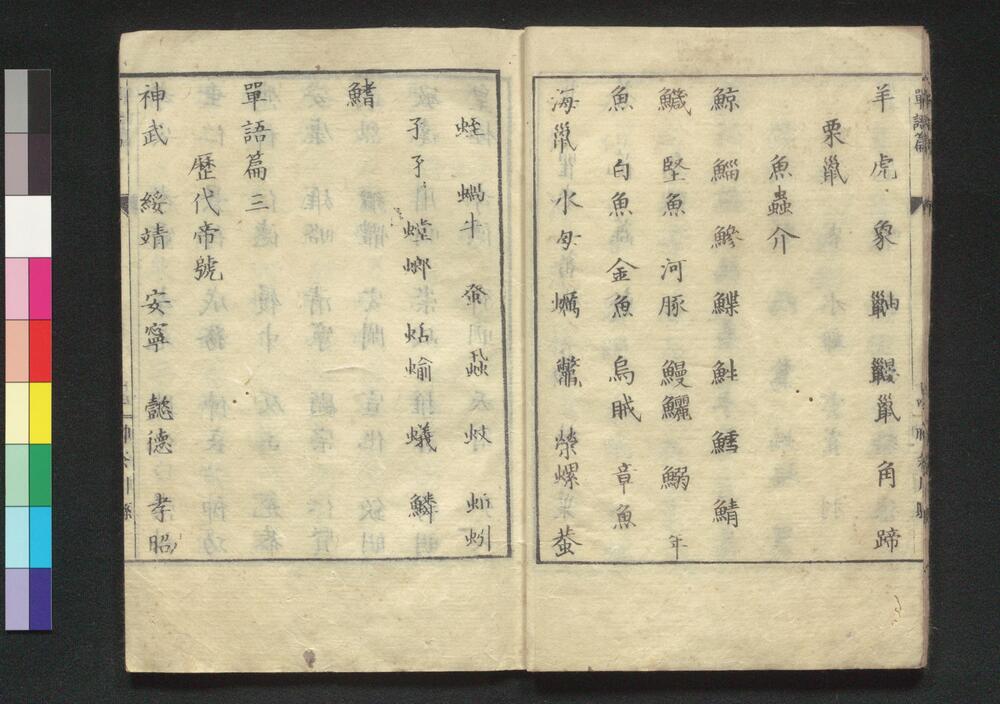 羊 虎 象 鼬 鼴鼠 角 蹄
栗鼠
魚蟲介
鯨 鯔 鰺 鰈 鮏 鱈 鯖
鱵 堅魚 河豚 鰻鱺 鰯 年
魚 白魚 金魚 烏賊 章魚
海鼠 水母 蠣 鱉 榮螺 蚕
蛭 蝸牛 蚤 蝨 蚊 蚯蚓
孑孑 螳螂 蛞蝓 蟻 鱗
鰭
單語篇三
歷代帝號
神武 綏靖 安寧 懿德 孝昭
單語篇
神奈川縣